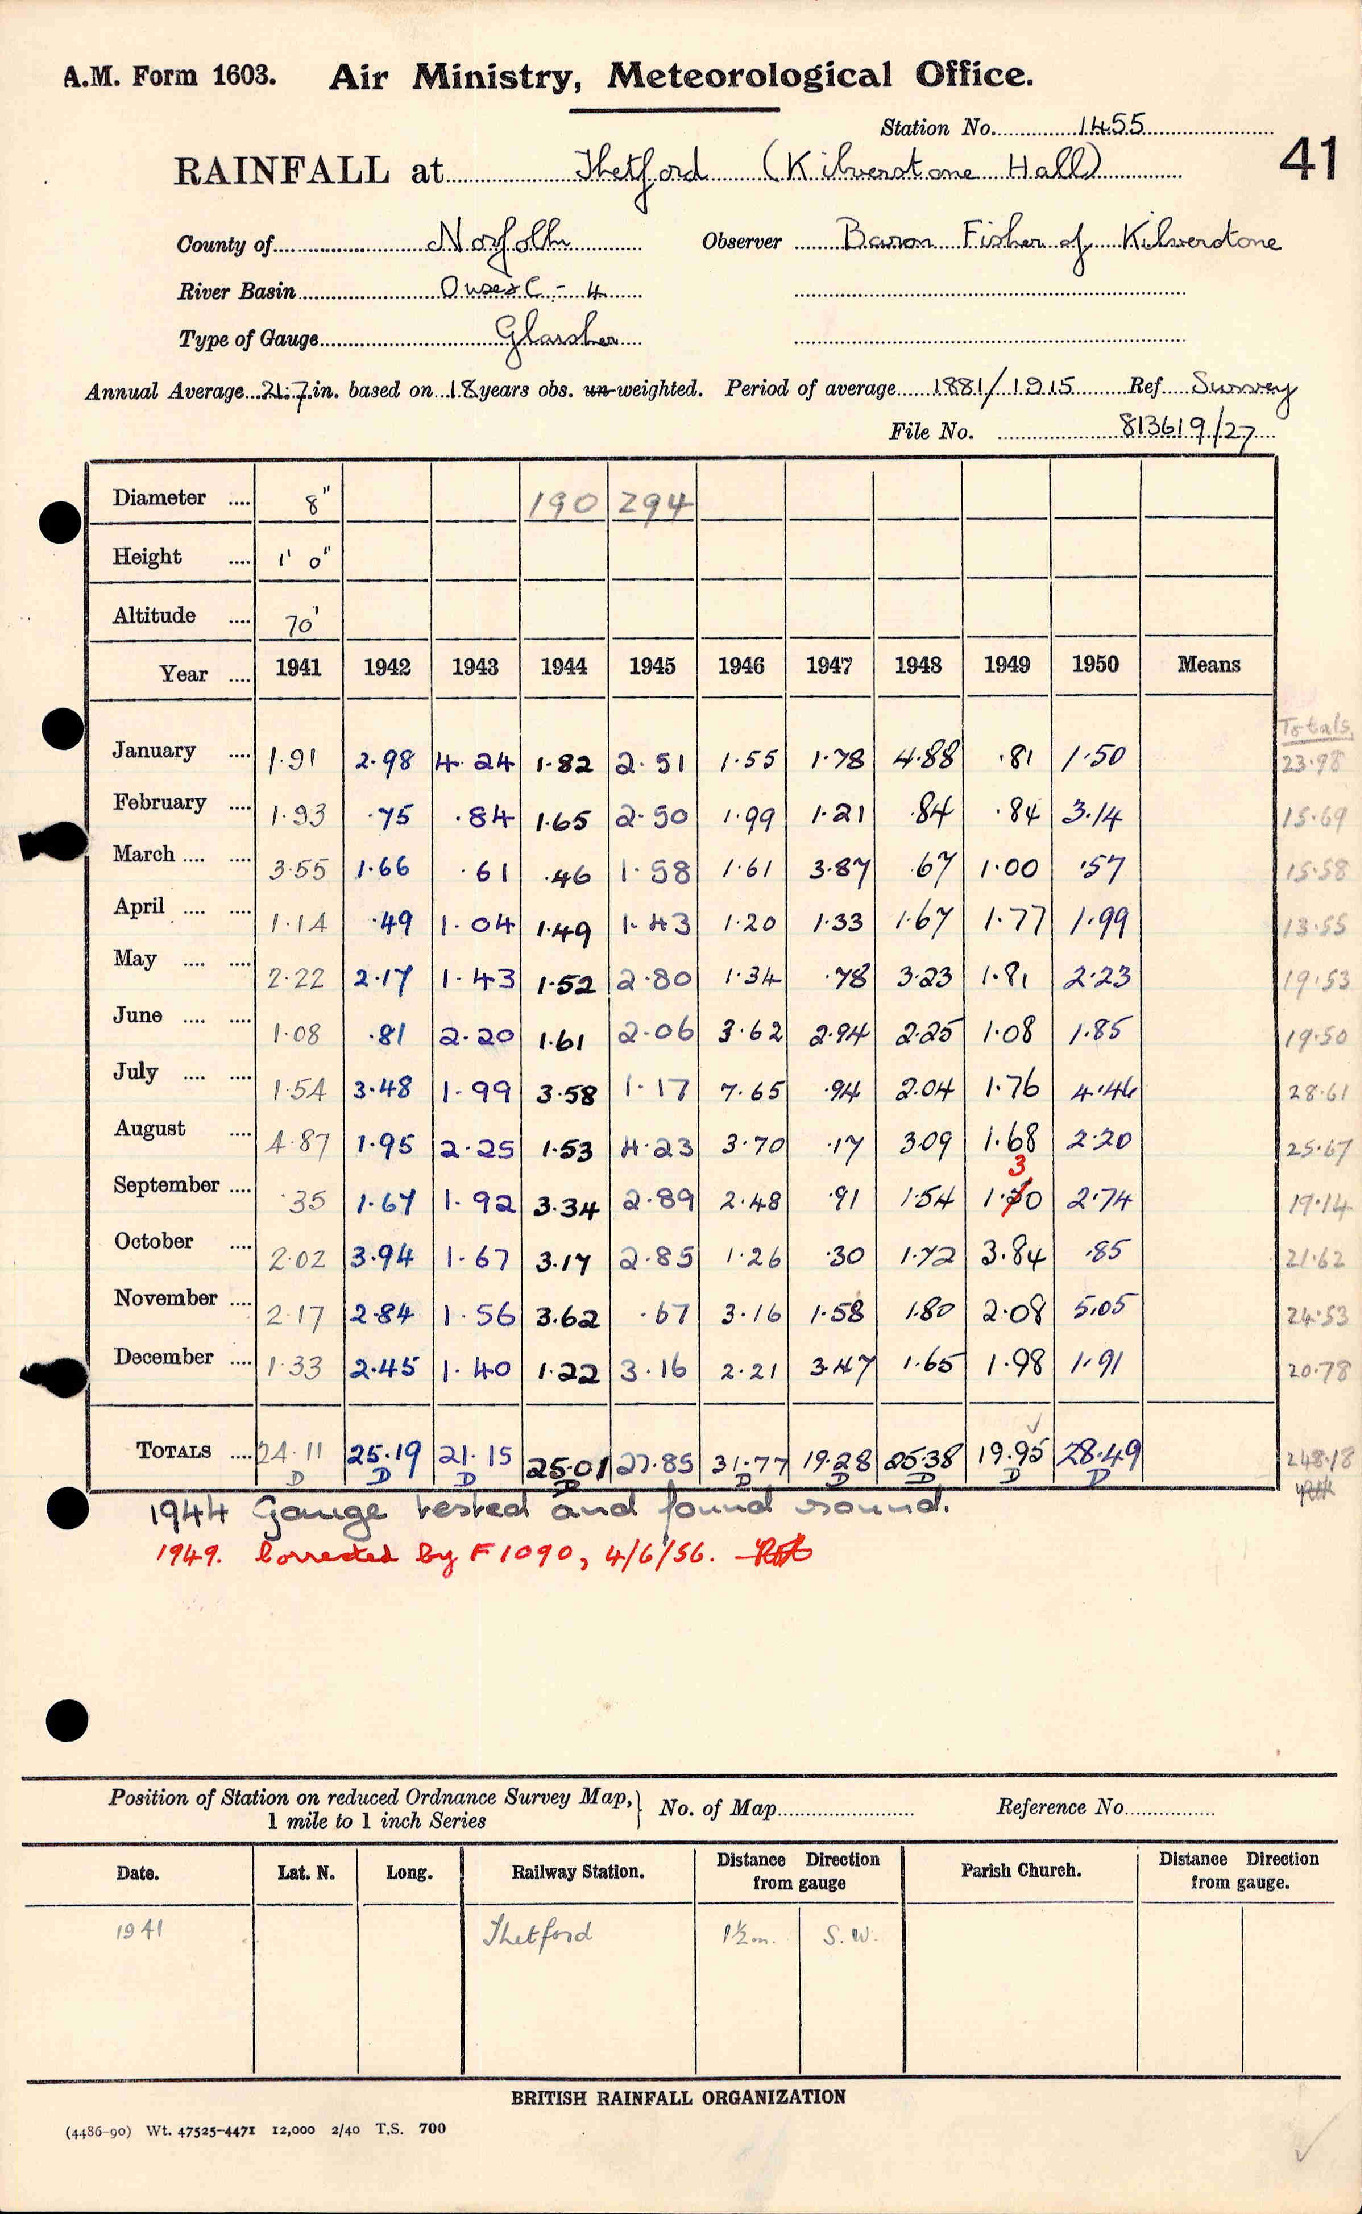 A.M. Form 1603. Air Ministry, Meteorological Office.
Station No. 1455
41
RAINFALL at Thetford (Kilverstone Hall)
County of Norfolk Observer Baron Fisher of Kilverstone
River Basin Ouse & C - 4
Type of Gauge Glaisher
Annual Average 21.7 in. based on 18 years obs. un-weighted. Period of average 1881/1915 Ref Survey
File No. 813619/27
Diameter .... 8" 190 294
Height .... 1' 0"
Altitude .... 70'
Year .... 1941 1942 1943 1944 1945 1946 1947 1948 1949 1950 Means
Totals
January .... 1.91 2.98 4.24 1.82 2.51 1.55 1.78 4.88 .81 1.50 23.98
February .... 1.93 .75 .84 1.65 2.50 1.99 1.21 .84 .84 3.14 15.69
March .... .... 3.55 1.66 .61 .46 1.58 1.61 3.87 .67 1.00 .57 15.58
April .... .... 1.14 .49 1.04 1.49 1.43 1.20 1.33 1.67 1.77 1.99 13.55
May .... .... 2.22 2.17 1.43 1.52 2.80 1.34 .78 3.23 1.81 2.23 19.53
June .... .... 1.08 .81 2.20 1.61 2.06 3.62 2.94 2.25 1.08 1.85 19.50
July .... .... 1.54 3.48 1.99 3.58 1.17 7.65 .94 2.04 1.76 4.46 28.61
August .... 4.87 1.95 2.25 1.53 4.23 3.70 .17 3.09 1.68 2.20 25.67
3
September .... .35 1.67 1.92 3.34 2.89 2.48 .91 1.54 1.20 2.74 19.14
October .... 2.02 3.94 1.67 3.17 2.85 1.26 .30 1.72 3.84 .85 21.62
November .... 2.17 2.84 1.56 3.62 .67 3.16 1.58 1.80 2.08 5.05 24.53
December .... 1.33 2.45 1.40 1.22 3.16 2.21 3.47 1.65 1.98 1.91 20.78
TOTALS .... 24.11 25.19 21.15 25.01 27.85 31.77 19.28 25.38 19.95 28.49 248.18
D D D D D D D D D
1944 Gauge tested and found sound.
1949. Corrected by F1090, 4/6/56.
Position of Station on reduced Ordnance Survey Map,} No. of Map Reference No.
1 mile to 1 inch Series
Date. Lat. N. Long. Railway Station. Distance Direction from gauge Parish Church. Distance Direction from gauge.
1941 Thetford 1½m. S.W.
BRITISH RAINFALL ORGANIZATION
(4486-90) Wt. 47525-4471 12,000 2/40 T.S. 700